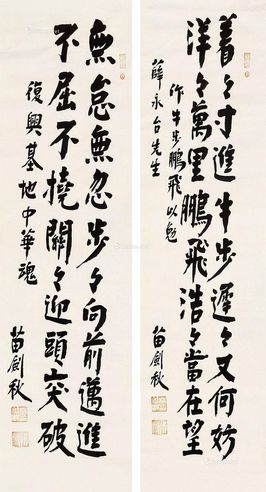 着々寸進牛步遲々又何妨
洋々萬里鵬飛浩々當在望
作牛步鵬飛以勉
薛永台先生
苗劍秋
無怠無忽步々向前邁進
不屈不撓關々迎頭突破
復興基地中華魂
苗劍秋